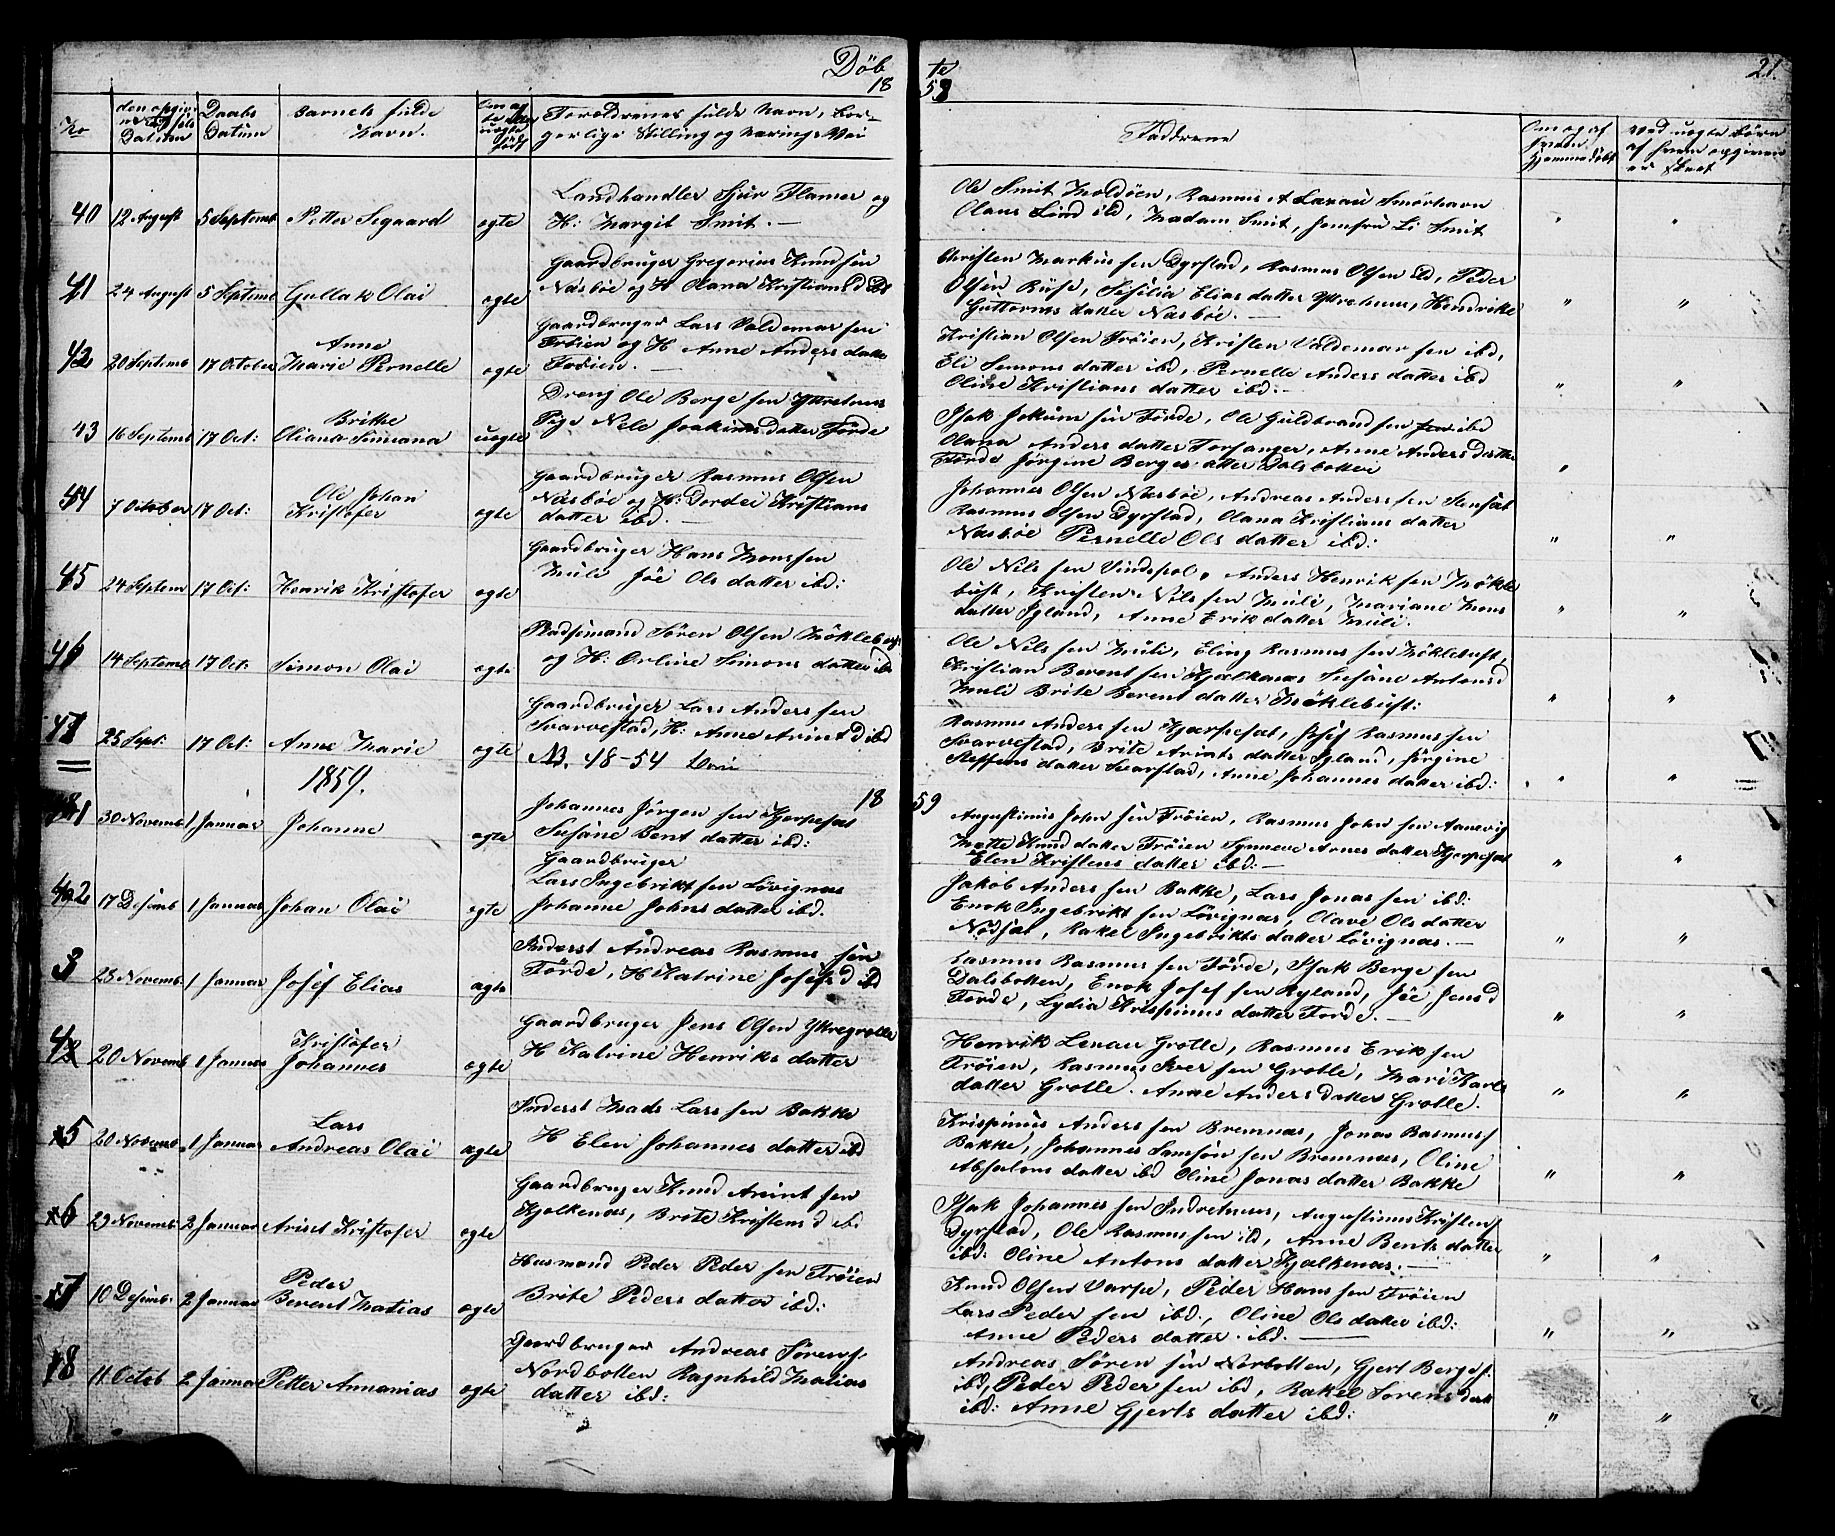 Döb
te
18
58
21.
No
den opgiv
ne Fødsels
Datum
Daabs
Datum
Barnets fulde
Navn.
Om æg
te eller
uægte
född
Foreldrenes fulde Navn, bor-
gerlige Stilling og Nærings Vei
Faddrene
Om og af
hvem
hjemmedöbt
ved uægte Börn
af hvem opgiven
er skeet
40 12 August 5 Septemb Petter Segaard egte
Landhandler Sjur Flamer og
H: Margit Smit. —
Ole Smit Moldöen, Rasmus A Lanau Smörhavn
Olaus Lind ibd, Madam Smit, Jomfru Li Smit
" "
41 24 August 5 Septemb Gullak Olai egte
Gaardbruger Gregorius Knudsen
Næsböe og H Olana Kristians d
Christen Markus sen Dyrstad, Rasmus Olsen ibd, Peder
Olsen Ruse, Sesilia Elias datter Yttrehuus, Hendrikke
Guttorms datter Næsböe. —
" "
42 20 Septemb 17 October Anne
Marie Pernelle egte
Gaardbruger Lars Valdemar sen
Tröien og H Anne Anders datter
Tröien. —
Kristian Olsen Tröien, Kristen Valdemar sen ibd,
Eli Semons datter ibd, Pernelle Anders datter ibd
Oline Kristians datter ibd. —
" "
43 16 Septemb 17 Oct: Britha
Oliana Simiana uegte
Dreng Ole Berge sen Yttrehuus
Pige Nele Joakims datter Förde
Isak Jokum sen Förde, Ole Guldbrandsen ibd
Olana Anders datter Torsanger, Anne Anders datter
Förde Jörgine Berges datter Dalsbotten
"
44 7 October 17 Oct: Ole Johan
Kristofer egte
Gaardbruger Rasmus Olsen
Næsböe og H: Dordei Kristians
datter ibd. —
Johannes Olsen Næsböe, Andreas Anders sen Stensæt
Rasmus Olsen Dyrstad, Olana Kristians datter
Næsböe Pernelle Ols datter ibd:
" "
45 24 Septem 17 Oct: Henrik Kristofer egte
Gaardbruger Hans Monssen
Muli Jöe Ols datter ibd:
Ole Nils sen Vindspol, Anders Henrik sen Mökle
bust, Kristen Nils sen Muli, Mariane Mons
datter Igland, Anne Erik datter Muli.
" "
46 14 Septemb 17 Oct: Simon Olai egte
Pladsemand Sören Olsen Mökleb
og H: Orline Simons datter ibd
Ole Nils sen Muli, Eling Rasmus sen Möklebust,
Kristian Berent sen Kjælkenæs Susane Antons d
Muli Brite Berent datter Möklebust:
" "
47 25 Sept: 17 Oct: Anne Marie egte
Gaardbruger Lars Anders sen
Svarvestad, H: Anne Arint d ibd
NB. 48-54
Rasmus Anders sen Hjærpesæt, Josef Rasmus sen
Svarvestad, Brite Arints datter Igland, Jörgine
Steffens datter Svarstad, Anne Johannes datter ibd:
" "
1859.
18
59
1 30 Novemb 1 Januar Johanne egte
Johannes Jörgen sen Hjerpesæt
Susane Bent datter ibd:
Augustinus John sen Tröien, Rasmus John sen Aanevig
Mette Knud datter Tröien Synneve Arnes datter Hjerpesæt
Elen Kristens datter ibd. —
" "
2 17 Desemb 1 Januar Johan Olai egte
Gaardbruger
Lars Ingebrikt sen Lövignæs
Johanne Johns datter ibd.
Jakob Anders sen Bakke, Lars Jonas sen ibd:
Enok Ingebrikt sen Lövignæs, Olave Ols datter
Nödset, Rakel Ingebrikts datter Lövignæs. —
" "
3 25 Novemb 1 Januar Josef Elias egte
Inderst Andreas Rasmus sen
Förde, H Katrine Josefs d ibd
Rasmus Rasmus sen Förde, Isak Berge sen
Dalsbotten, Enok Josef sen Ryland, Jöe Jens d
Förde, Lydia Krispinus datter Förde. —
" "
4 20 Novemb 1 Januar Kristofer
Johannes egte
Gaardbruger Jens Olsen Yttregrotle
H Katrine Henriks datter
Henrik Lenau Grotle, Rasmus Erik sen
Tröien, Rasmus Iver sen Grotle, Mari Karls
datter Grotle. Anne Anders datter Grotle.
" "
5 20 Novemb 1 Januar Lars
Andreas Olai egte
Inderst Mads Lars sen Bakke
H Elen Johannes datter ibd
Krispinus Anders sen Bremnæs, Jonas Rasmus s
Bakke, Johannes Samson sen Bremnæs, Oline
Absalons datter ibd Oline Jonas datter Bakke
" "
6 29 Novemb 2 Januar Arint Kristofer egte
Gaardbruger Knud Arint sen
Kjelkenæs, Brite Kristens d ibd
Isak Johannes sen Indrehuus, Augustinus Kristens
Dyrstad, Ole Rasmus sen ibd, Anne Bents datter
ibd: Oline Antons datter Kjælkenæs. —
" "
7 10 Desemb: 2 Januar Peder
Berent Matias egte
Husmand Peder Peder sen Tröien
Brite Peders datter ibd:
Knud Olsen Varpe, Peder Hans sen Tröien
Lars Peder sen ibd., Oline Ols datter ibd:
Anne Peders datter ibd. —
" "
8 11 Octob 2 Januar Petter Annanias egte
Gaardbruger Andreas Sörens s
Nordbotten Ragnhild Matias
datter ibd:
Andreas Sören sen Norbotten, Gjert Berges s
ibd, Peder Peder sen ibd, Rakel Sörens datt
ibd: Anne Gjerts datter ibd:
" "